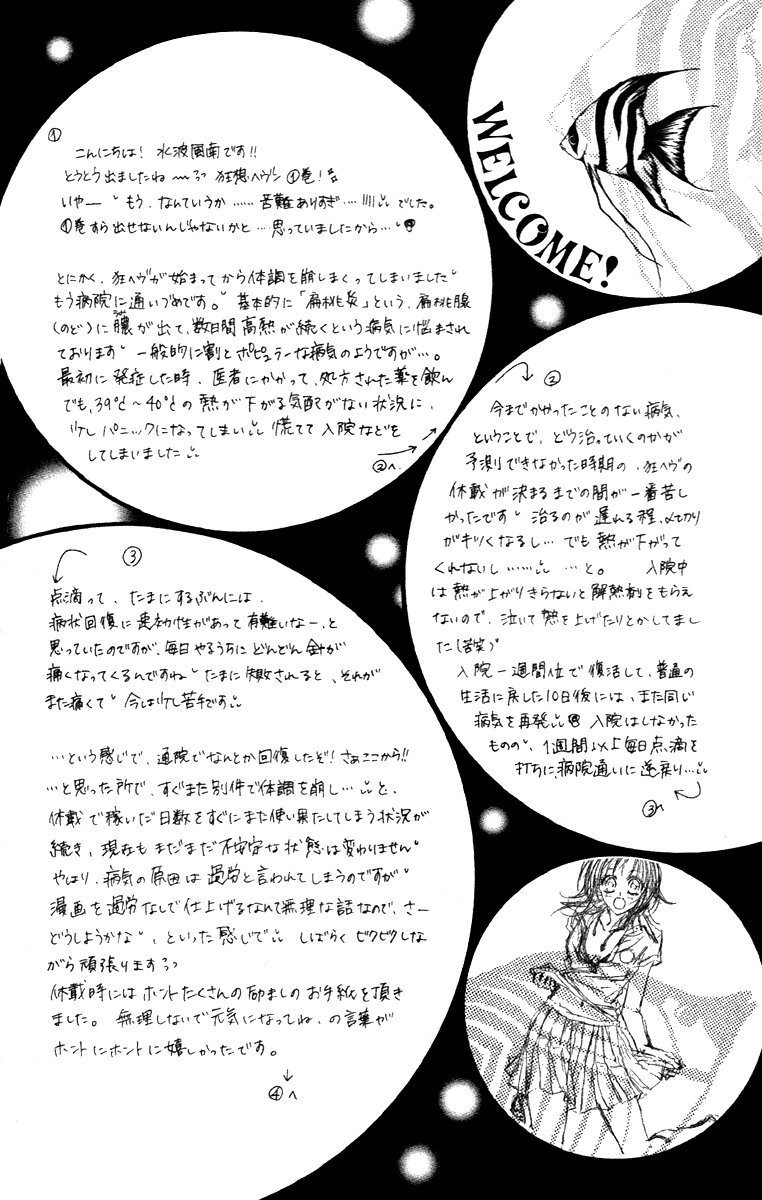 WELCOME!
①
こんにちは! 水波風南です!!
とうとう出ましたね 〜〜っっ 狂想ヘヴン①巻!
いやー もう、なんていうか……苦難ありすぎ…!!!!でした。
①巻すら出せないんじゃないかと…思っていましたから…
とにかく、狂ヘヴが始まってから体調を崩しまくってしまいました
もう病院に通いづめです。基本的に「扁桃炎」という、扁桃腺
(のど)に膿が出て、数日間高熱が続くという病気に悩まされ
ております 一般的に割とポピュラーな病気のようですが…。
最初に発症した時、医者にかかって、処方された薬を飲ん
でも、39℃〜40℃の熱が下がる気配がない状況に、
少しパニックになってしまい 慌てて入院などを
してしまいました
②へ
②
今までかかったことのない病気、
ということで、どう治っていくのかが
予測できなかった時期の、狂ヘヴの
休載が決まるまでの間が一番苦し
かったです 治るのが遅れる程、〆切り
がキツくなるし… でも熱が下がって
くれないし…… …と。 入院中
は熱が上がりきらないと解熱剤をもらえ
ないので、泣いて熱を上げたりとかしてまし
た(苦笑)
入院一週間位で復活して、普通の
生活に戻した10日後には、また同じ
病気を再発 入院はしなかった
ものの、1週間以上毎日点滴を
打ちに、病院通いに逆戻り…
③へ
③
点滴って、たまにするぶんには、
病状回復に即効性があって有難いなー、と
思っていたのですが、毎日やるうちにどんどん針が
痛くなってくるんですね たまに失敗されると、それが
また痛くて 今は少し苦手です
…という感じで、通院でなんとか回復したぞ!さぁここから!!
…と思った所で、すぐまた別件で体調を崩し… と、
休載で稼いだ日数をすぐにまた使い果たしてしまう状況が
続き、現在もまだまだ不安定な状態は変わりません
やはり、病気の原因は過労と言われてしまうのですが
漫画を過労なしで仕上げるなんて無理な話なので、さー
どうしようかな、といった感じで しばらくビクビクしな
がら頑張りますっっ
休載時にはホントたくさんの励ましのお手紙を頂き
ました。無理しないで元気になってね、の言葉が
ホントにホントに嬉しかったです。
④へ